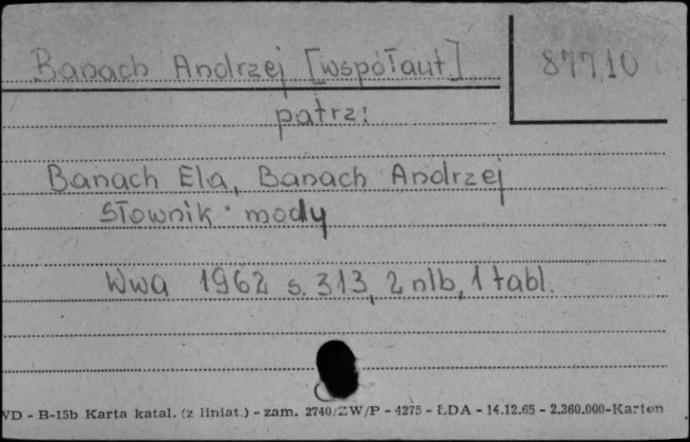 Banach Andrzej [współaut] 87710
patrz:
Banach Ela, Banach Andrzej
Słownik mody
Wwa 1962 s. 313, 2 nlb, 1 tabl.
WD - B-15b Karta katal. (z liniat.) - zam. 2740/ZW/P - 4275 - ŁDA - 14.12.65 - 2.360.000-Karton